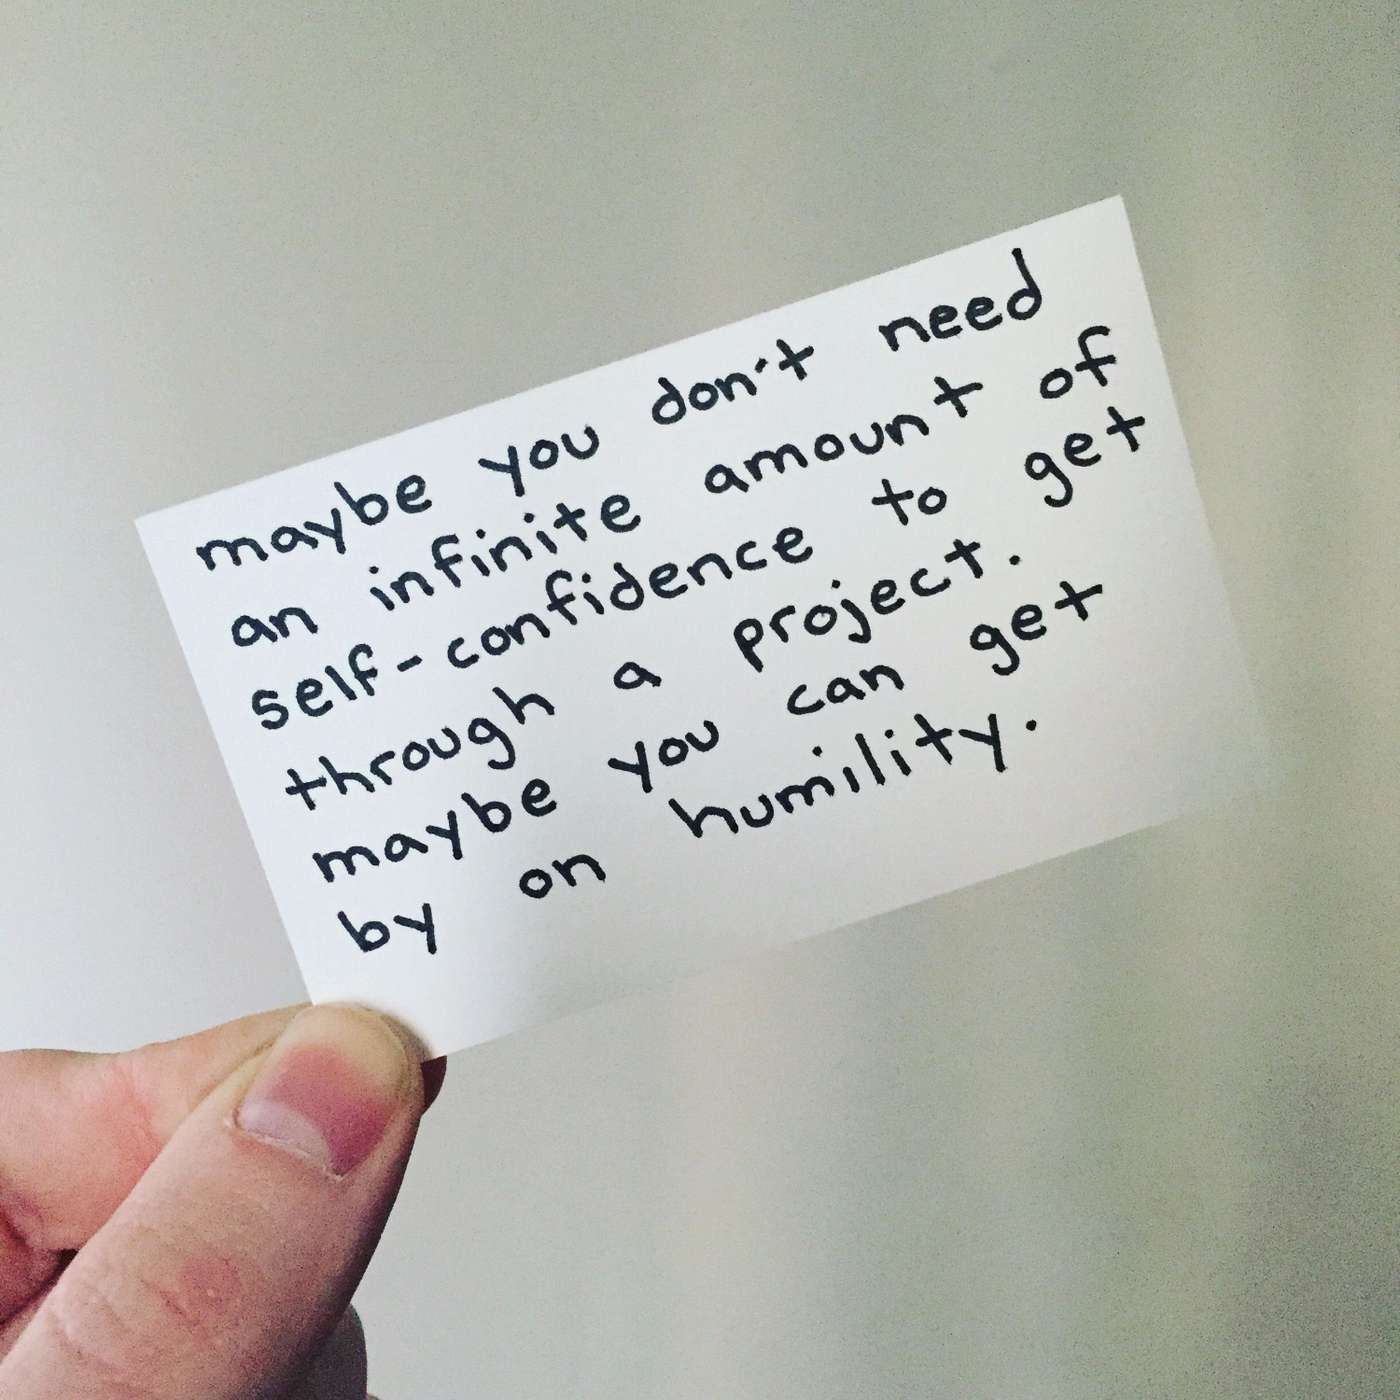 maybe you don't need
an infinite amount of
self-confidence to get
through a project.
maybe you can get
by on humility.